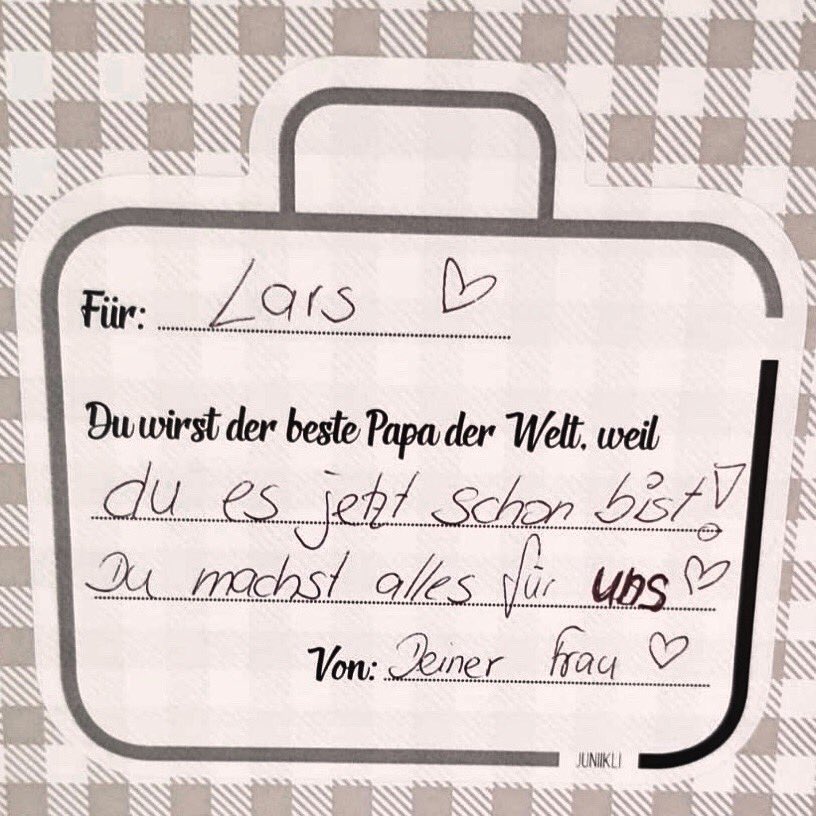 Für: Lars ♡
Du wirst der beste Papa der Welt, weil
du es jetzt schon bist!
Du machst alles für uns ♡
Von: Deiner Frau ♡
JUNIIKLI